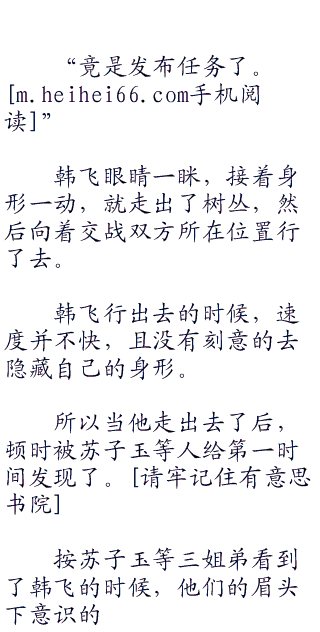 “竟是发布任务了。
[m.heihei66.com手机阅
读]”
韩飞眼睛一眯，接着身
形一动，就走出了树丛，然
后向着交战双方所在位置行
了去。
韩飞行出去的时候，速
度并不快，且没有刻意的去
隐藏自己的身形。
所以当他走出去了后，
顿时被苏子玉等人给第一时
间发现了。[请牢记住有意思
书院]
按苏子玉等三姐弟看到
了韩飞的时候，他们的眉头
下意识的